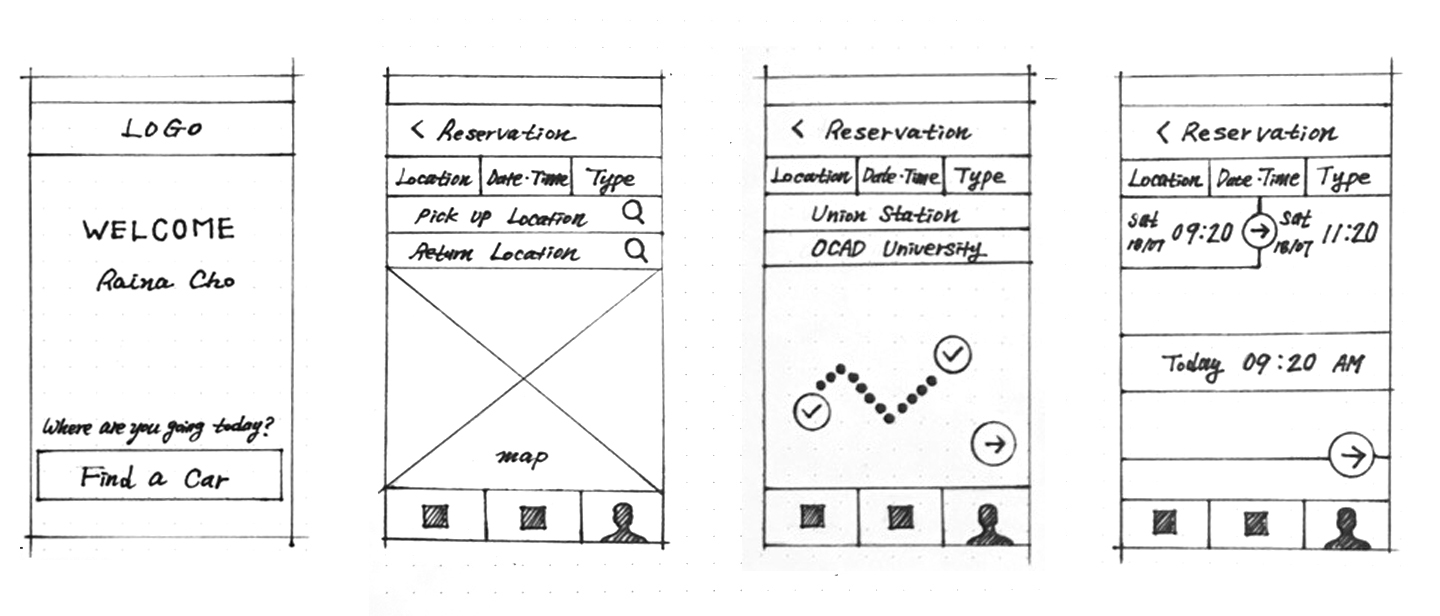 LOGO
WELCOME
Raina Cho
Where are you going today?
Find a Car
< Reservation
Location Date·Time Type
Pick up Location
Return Location
map
< Reservation
Location Date·Time Type
Union Station
OCAD University
< Reservation
Location Date·Time Type
Sat 18/07 09:20 → Sat 18/07 11:20
Today 09:20 AM